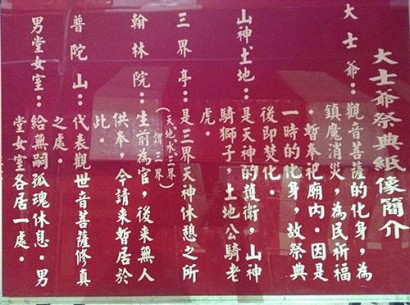 大士爺祭典紙像簡介
大士爺：觀音菩薩的化身，為
鎮魔消災，為民祈福
，暫奉祀廟内。因是
一時的化身，故祭典
後即焚化。
山神土地：是天神的護衛，山神
騎獅子，土地公騎老
虎。
三界亭：是三界天神休憩之所
（天地水三界
謂三界）
翰林院：生前為官，後來無人
供奉，今請來暫居於
此。
普陀山：代表觀世音菩薩修真
之處。
男堂女室：給無嗣孤魂休息。男
堂女室各居一處。